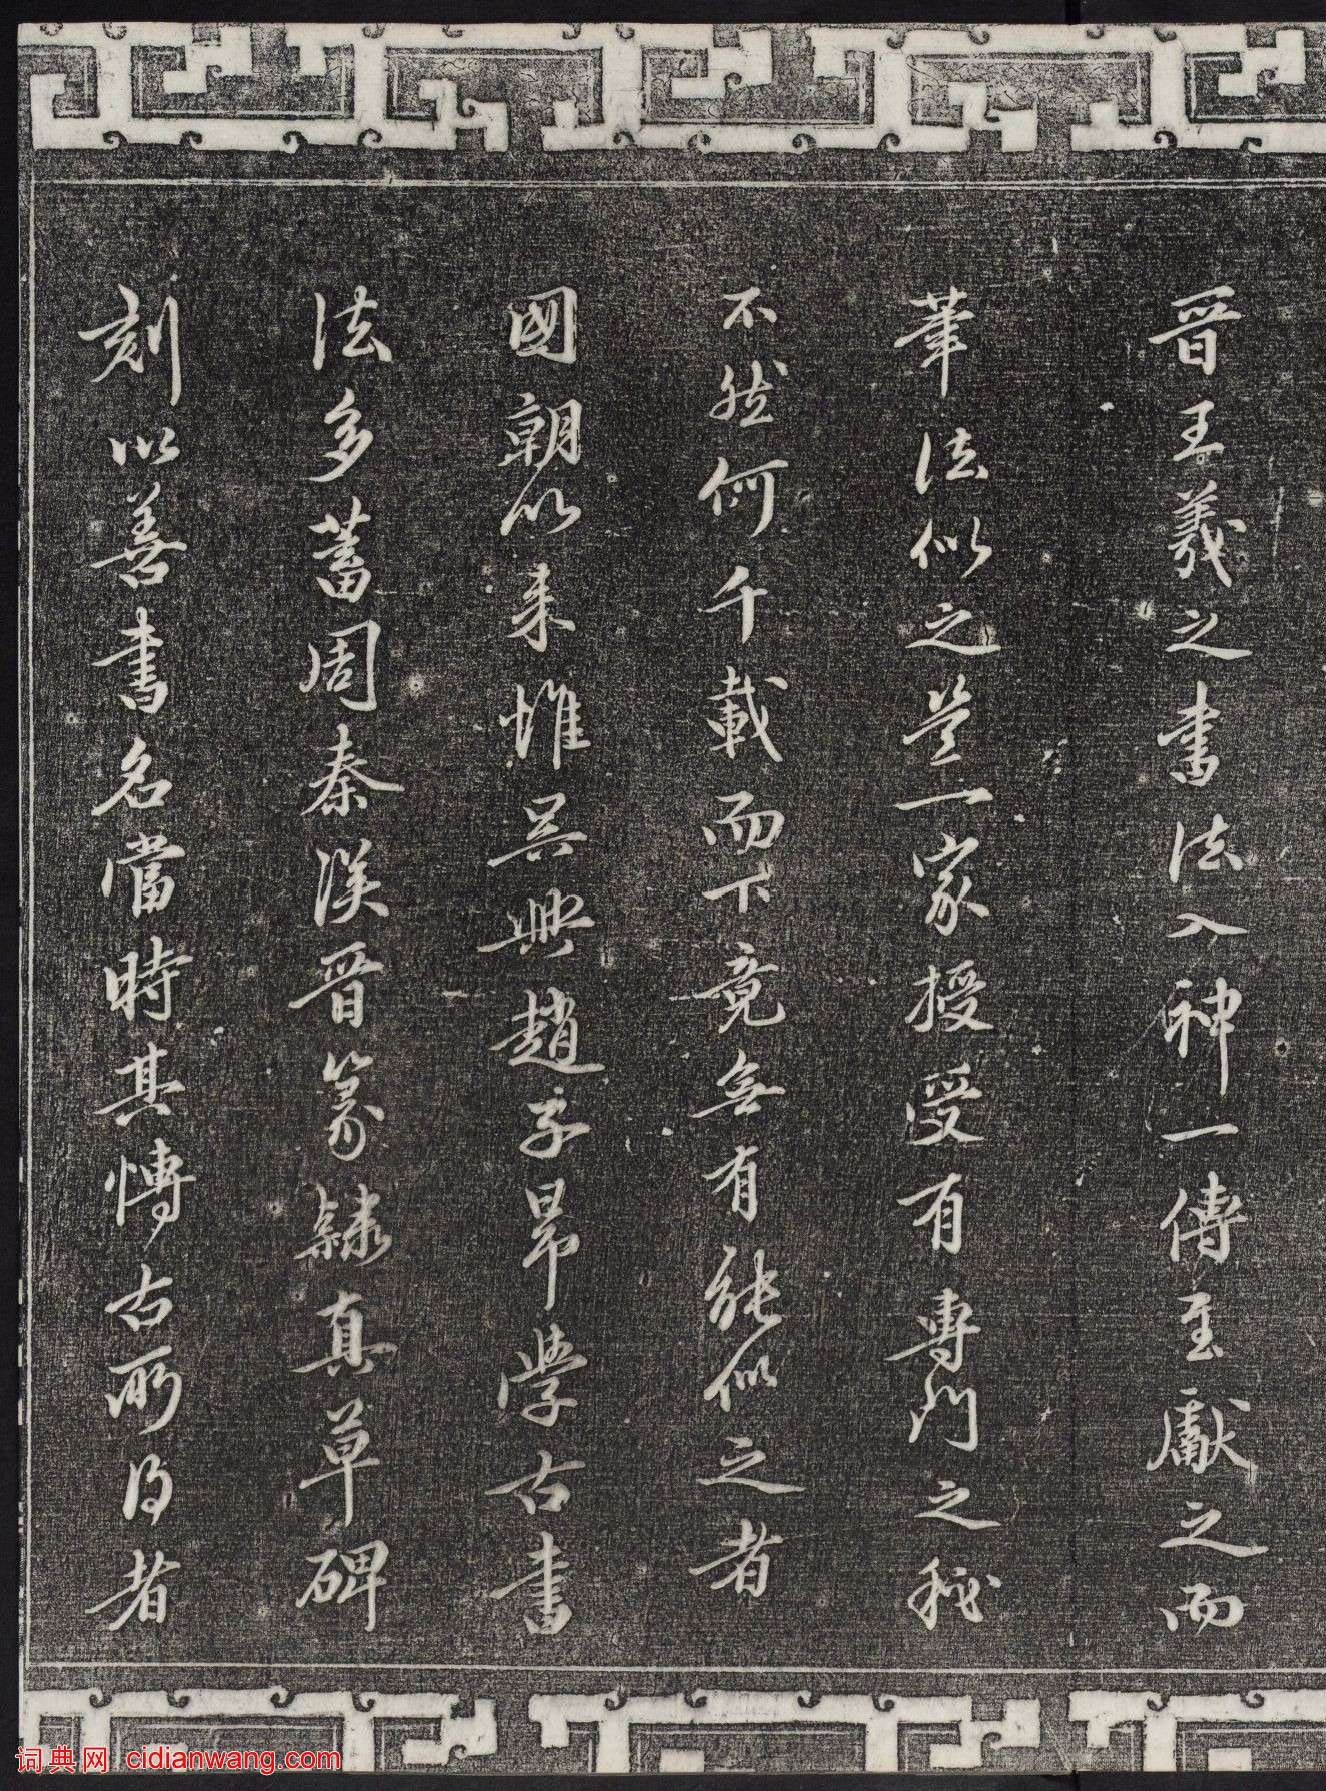 晉王羲之書法入神一傳至獻之而
筆法似之豈一家授受有專門之我
不然何千載而下竟無有能似之者
國朝以來惟吳興趙子昂學古書
法多蓄周秦漢晉篆隸真草碑
刻以善書名當時其博古所得者
词典网 cidianwang.com